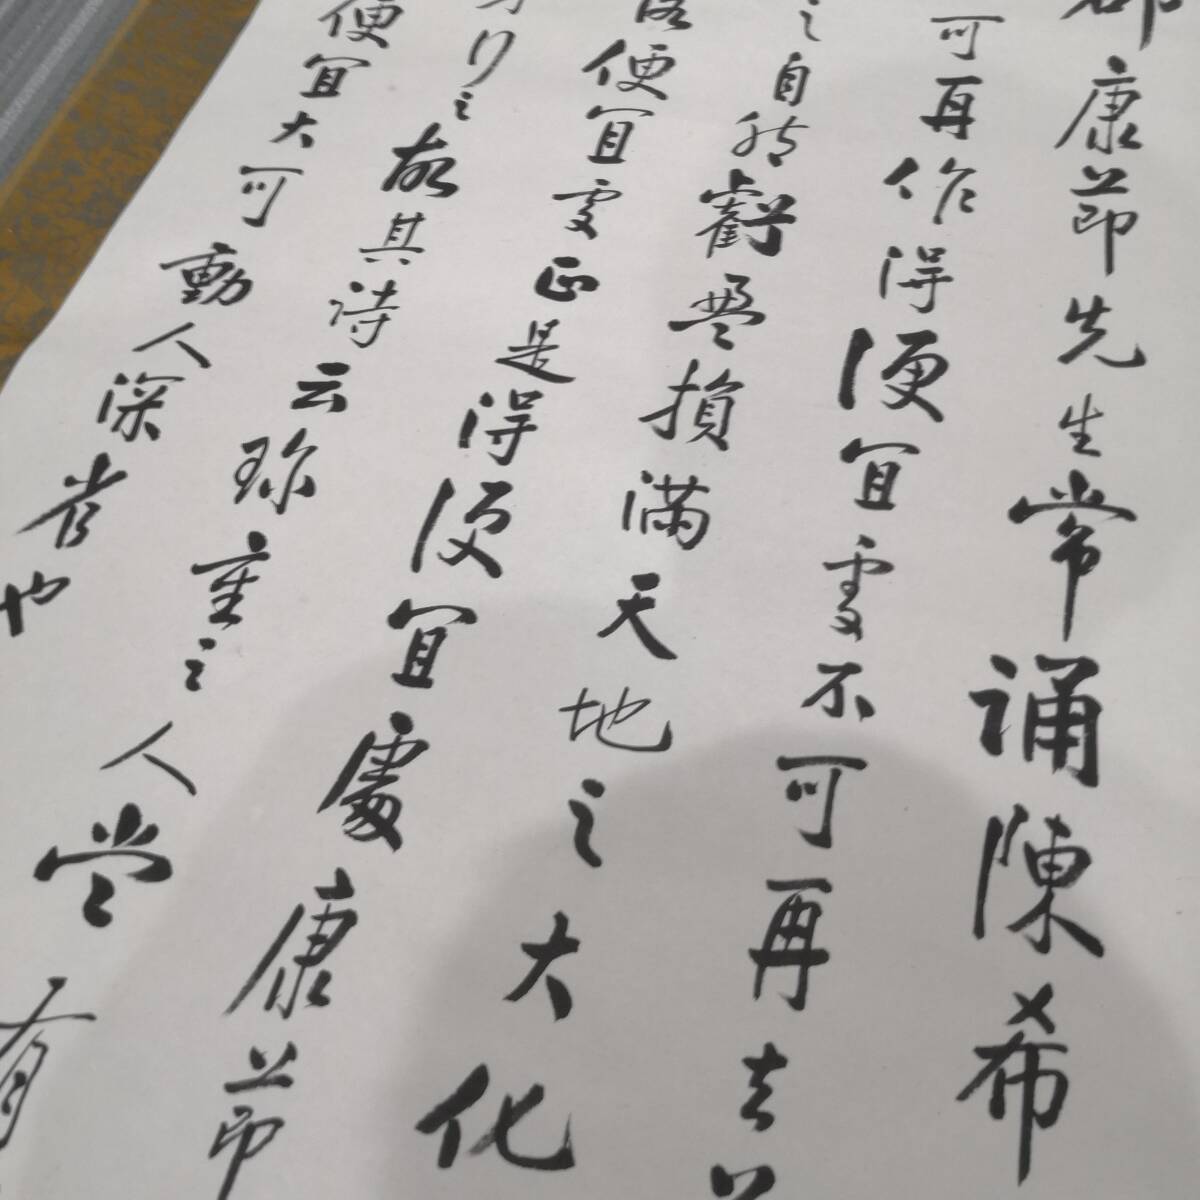 康節先生常誦陳希
可再作得便宜處不可再去
之自然虧盈損滿天地之大化
便宜處正是得便宜處康節
行之故其詩云珍重之人堂有
便宜大可動人深省也